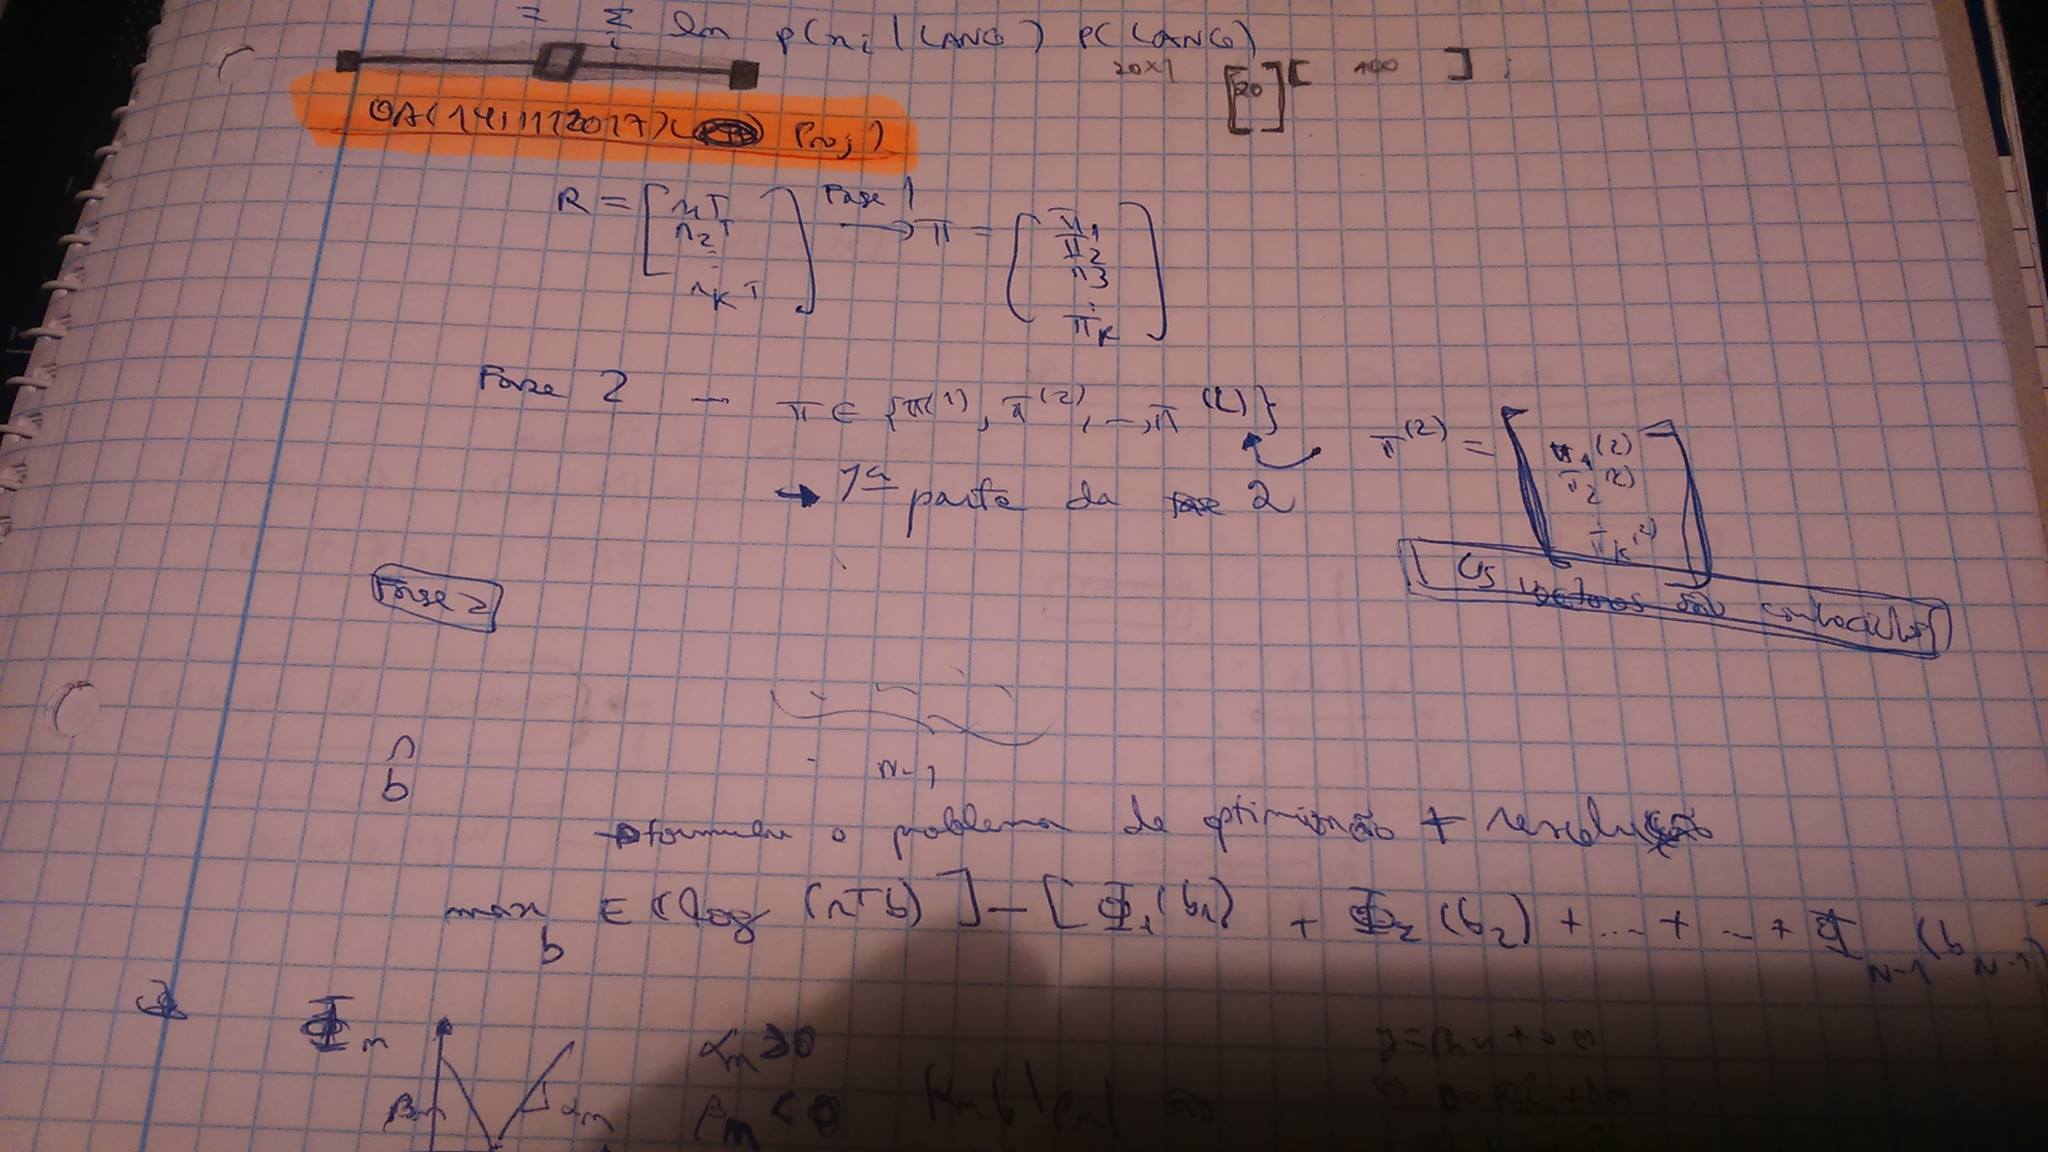 = Σ_i ln p(x_i | LANG) P(LANG)
20x1 [20] [ 100 ]
OA(14/11/2017) Proj 1
R = [ r1T Fase 1 → π = [ π1
r2T π2
: π3
rKT ] : πK ]
Fase 2 — π ∈ {π(1), π(2), ..., π(L)}
π(2) = [ π1(2)
π2(2)
:
πK(2) ]
→ 1ª parte da fase 2
Os vectores são
Fase 2
N-1
b̂
→ formular o problema de optimização + resolução
max b E [log (rTb)] - [Φ1(b1) + Φ2(b2) + ... + ... + ΦN-1(bN-1)
Φn
αn ≥ 0
βn αn βn < 0